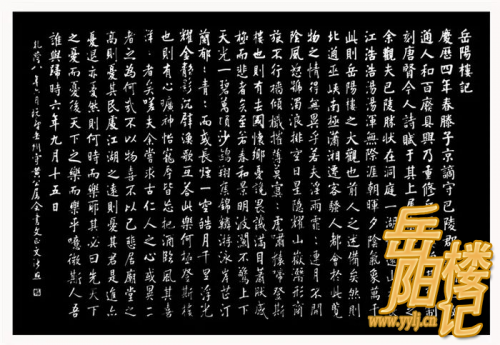 岳陽樓記
慶曆四年春滕子京謫守巴陵郡
通人和百廢具興乃重修岳
刻唐賢今人詩賦于其上屬
余觀夫巴陵勝狀在洞庭一湖
江浩浩湯湯橫無際涯朝暉夕陰氣象萬千
此則岳陽樓之大觀也前人之述備矣然則
北通巫峽南極瀟湘遷客騷人多會於此覽
物之情得無異乎若夫淫雨霏々連月不開
陰風怒號濁浪排空日星隱耀山嶽潛形商
旅不行檣傾楫摧薄暮冥々虎嘯猿啼登斯
樓也則有去國懷鄉憂讒畏譏滿目蕭然感
極而悲者矣至若春和景明波瀾不驚上下
天光一碧萬頃沙鷗翔集錦鱗游泳岸芷汀
蘭郁々青々而或長煙一空皓月千里浮光
耀金靜影沉璧漁歌互答此樂何極登斯樓
也則有心曠神怡寵辱皆忘把酒臨風其喜
洋々者矣嗟夫余嘗求古仁人之心或異二
者之為何哉不以物喜不以己悲居廟堂之
高則憂其民處江湖之遠則憂其君是進亦
憂退亦憂然則何時而樂耶其必曰先天下
之憂而憂後天下之樂而樂乎噫微斯人吾
誰與歸時六年九月十五日
岳阳楼记
www.yylj.cn